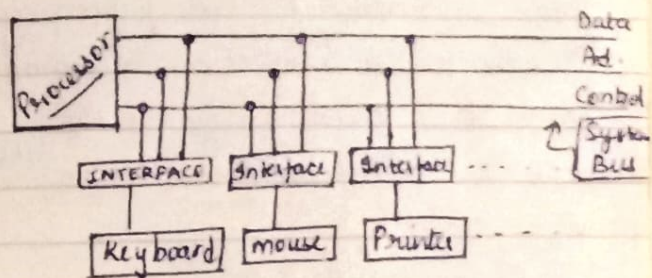 Data
Processor
Ad.
Control
System
Bus
INTERFACE
Interface
Interface
Keyboard
mouse
Printer